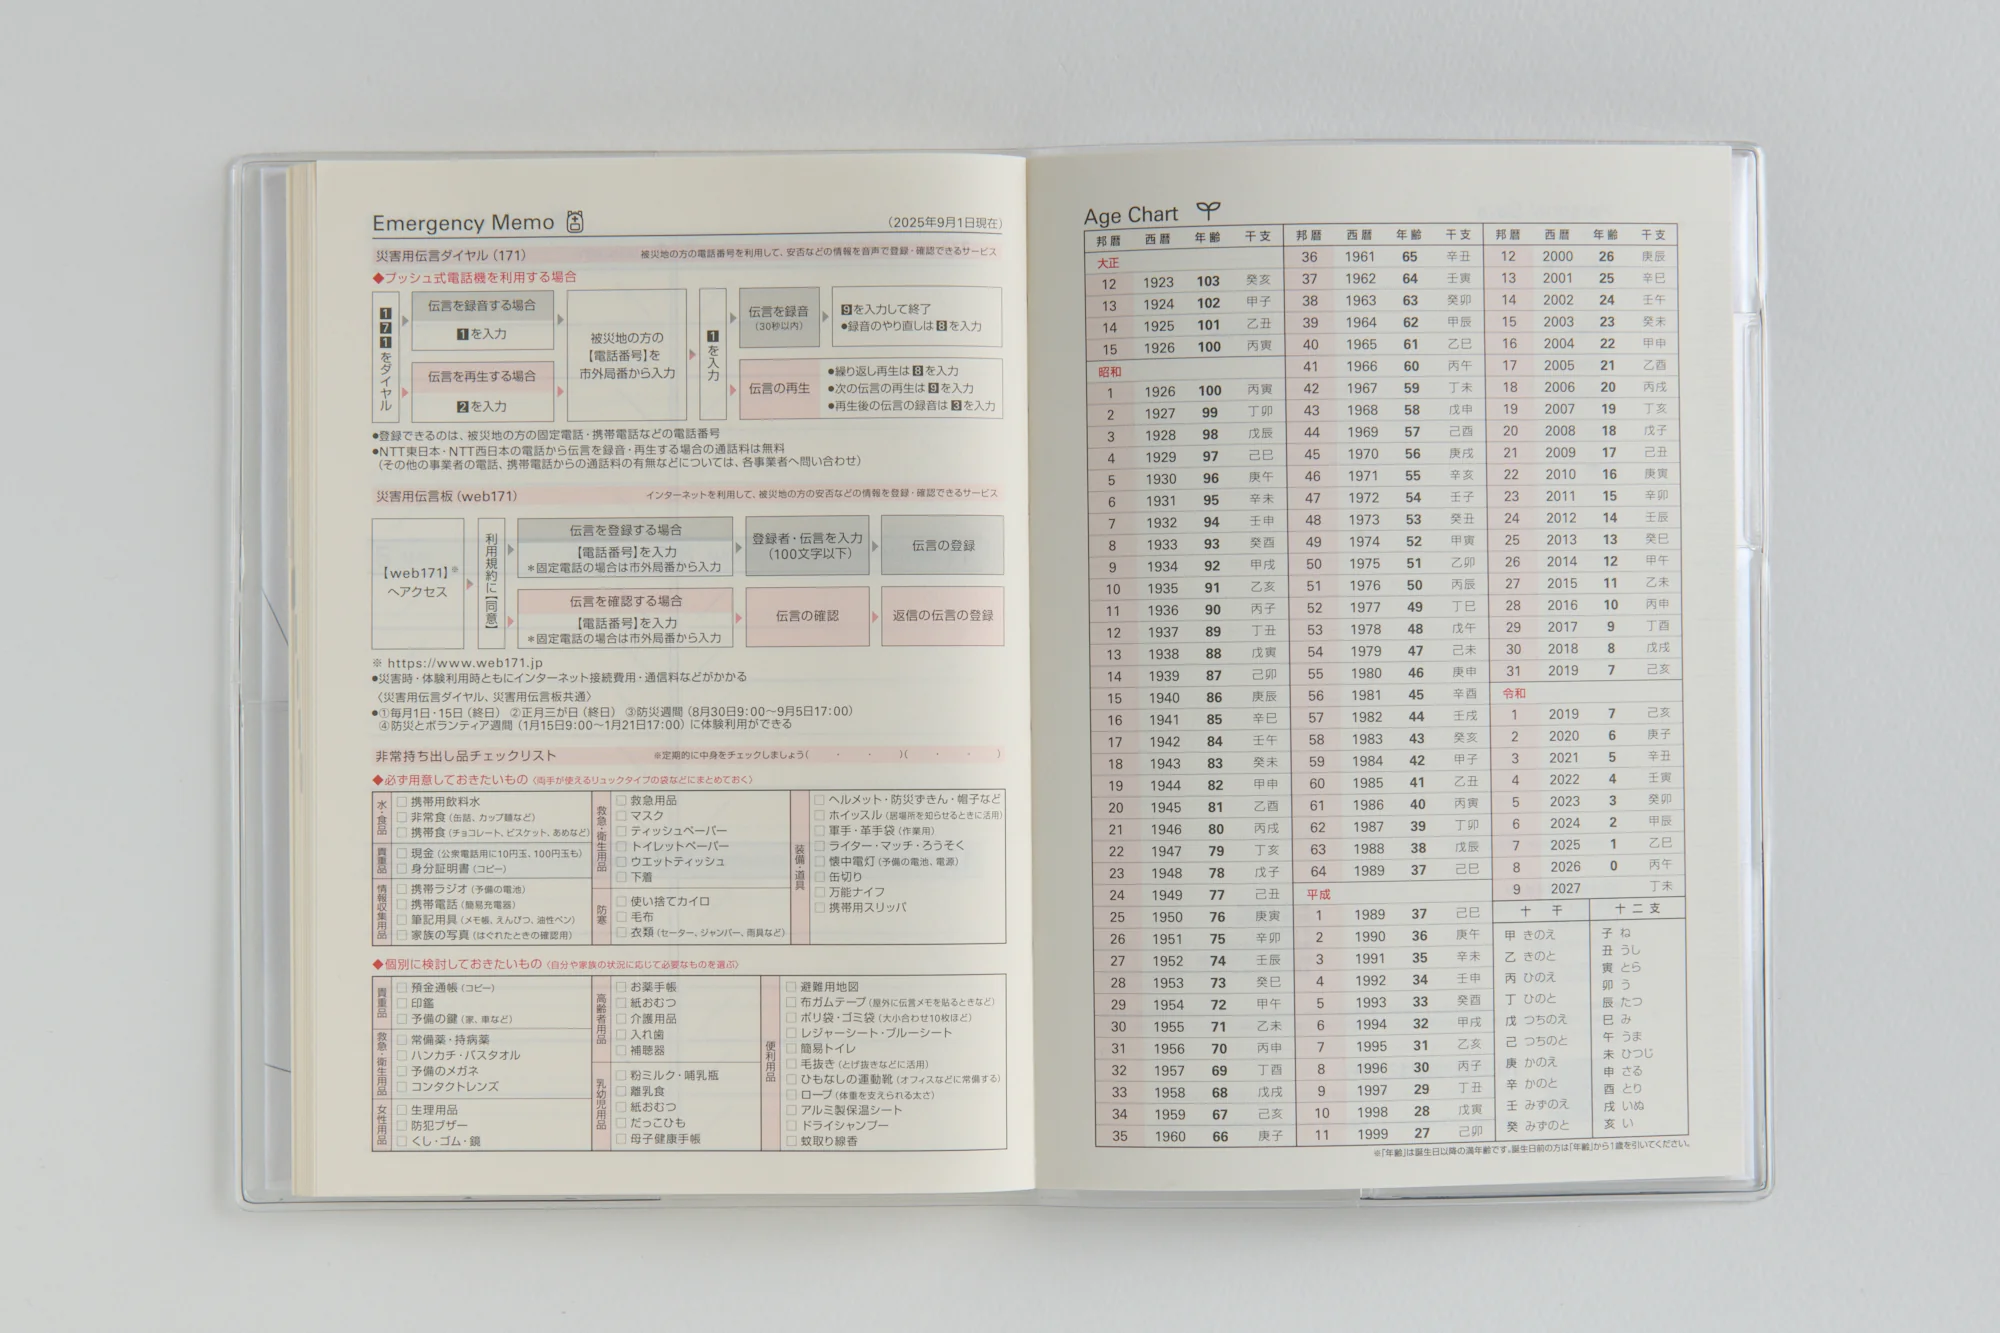 Emergency Memo
（2025年9月1日現在）
災害用伝言ダイヤル（171）
被災地の方の電話番号を利用して、安否などの情報を音声で登録・確認できるサービス
◆プッシュ式電話機を利用する場合
171をダイヤル
伝言を録音する場合
1を入力
伝言を再生する場合
2を入力
被災地の方の
【電話番号】を
市外局番から入力
1を入力
伝言を録音
（30秒以内）
9を入力して終了
●録音のやり直しは8を入力
伝言の再生
●繰り返し再生は8を入力
●次の伝言の再生は9を入力
●再生後の伝言の録音は3を入力
●登録できるのは、被災地の方の固定電話・携帯電話などの電話番号
●NTT東日本・NTT西日本の電話から伝言を録音・再生する場合の通話料は無料
（その他の事業者の電話、携帯電話からの通話料の有無などについては、各事業者へ問い合わせ）
災害用伝言板（web171）
インターネットを利用して、被災地の方の安否などの情報を登録・確認できるサービス
【web171】※
へアクセス
利用規約に【同意】
伝言を登録する場合
【電話番号】を入力
＊固定電話の場合は市外局番から入力
登録者・伝言を入力
（100文字以下）
伝言の登録
伝言を確認する場合
【電話番号】を入力
＊固定電話の場合は市外局番から入力
伝言の確認
返信の伝言の登録
※ https://www.web171.jp
●災害時・体験利用時ともにインターネット接続費用・通信料などがかかる
〈災害用伝言ダイヤル、災害用伝言板共通〉
●①毎月1日・15日（終日） ②正月三が日（終日） ③防災週間（8月30日9:00〜9月5日17:00）
④防災とボランティア週間（1月15日9:00〜1月21日17:00）に体験利用ができる
非常持ち出し品チェックリスト
※定期的に中身をチェックしましょう（　・　・　）（　・　・　）
◆必ず用意しておきたいもの〈両手が使えるリュックタイプの袋などにまとめておく〉
水・食品
□携帯用飲料水
□非常食（缶詰、カップ麺など）
□携帯食（チョコレート、ビスケット、あめなど）
貴重品
□現金（公衆電話用に10円玉、100円玉も）
□身分証明書（コピー）
情報収集用品
□携帯ラジオ（予備の電池）
□携帯電話（簡易充電器）
□筆記用具（メモ帳、えんぴつ、油性ペン）
□家族の写真（はぐれたときの確認用）
救急・衛生用品
□救急用品
□マスク
□ティッシュペーパー
□トイレットペーパー
□ウエットティッシュ
□下着
防寒
□使い捨てカイロ
□毛布
□衣類（セーター、ジャンパー、雨具など）
装備・道具
□ヘルメット・防災ずきん・帽子など
□ホイッスル（居場所を知らせるときに活用）
□軍手・革手袋（作業用）
□ライター・マッチ・ろうそく
□懐中電灯（予備の電池、電源）
□缶切り
□万能ナイフ
□携帯用スリッパ
◆個別に検討しておきたいもの〈自分や家族の状況に応じて必要なものを選ぶ〉
貴重品
□預金通帳（コピー）
□印鑑
□予備の鍵（家、車など）
救急・衛生用品
□常備薬・持病薬
□ハンカチ・バスタオル
□予備のメガネ
□コンタクトレンズ
女性用品
□生理用品
□防犯ブザー
□くし・ゴム・鏡
高齢者用品
□お薬手帳
□紙おむつ
□介護用品
□入れ歯
□補聴器
乳幼児用品
□粉ミルク・哺乳瓶
□離乳食
□紙おむつ
□だっこひも
□母子健康手帳
便利用品
□避難用地図
□布ガムテープ（屋外に伝言メモを貼るときなど）
□ポリ袋・ゴミ袋（大小合わせ10枚ほど）
□レジャーシート・ブルーシート
□簡易トイレ
□毛抜き（とげ抜きなどに活用）
□ひもなしの運動靴（オフィスなどに常備する）
□ロープ（体重を支えられる太さ）
□アルミ製保温シート
□ドライシャンプー
□蚊取り線香
Age Chart
邦暦 西暦 年齢 干支
大正
12 1923 103 癸亥
13 1924 102 甲子
14 1925 101 乙丑
15 1926 100 丙寅
昭和
1 1926 100 丙寅
2 1927 99 丁卯
3 1928 98 戊辰
4 1929 97 己巳
5 1930 96 庚午
6 1931 95 辛未
7 1932 94 壬申
8 1933 93 癸酉
9 1934 92 甲戌
10 1935 91 乙亥
11 1936 90 丙子
12 1937 89 丁丑
13 1938 88 戊寅
14 1939 87 己卯
15 1940 86 庚辰
16 1941 85 辛巳
17 1942 84 壬午
18 1943 83 癸未
19 1944 82 甲申
20 1945 81 乙酉
21 1946 80 丙戌
22 1947 79 丁亥
23 1948 78 戊子
24 1949 77 己丑
25 1950 76 庚寅
26 1951 75 辛卯
27 1952 74 壬辰
28 1953 73 癸巳
29 1954 72 甲午
30 1955 71 乙未
31 1956 70 丙申
32 1957 69 丁酉
33 1958 68 戊戌
34 1959 67 己亥
35 1960 66 庚子
邦暦 西暦 年齢 干支
36 1961 65 辛丑
37 1962 64 壬寅
38 1963 63 癸卯
39 1964 62 甲辰
40 1965 61 乙巳
41 1966 60 丙午
42 1967 59 丁未
43 1968 58 戊申
44 1969 57 己酉
45 1970 56 庚戌
46 1971 55 辛亥
47 1972 54 壬子
48 1973 53 癸丑
49 1974 52 甲寅
50 1975 51 乙卯
51 1976 50 丙辰
52 1977 49 丁巳
53 1978 48 戊午
54 1979 47 己未
55 1980 46 庚申
56 1981 45 辛酉
57 1982 44 壬戌
58 1983 43 癸亥
59 1984 42 甲子
60 1985 41 乙丑
61 1986 40 丙寅
62 1987 39 丁卯
63 1988 38 戊辰
64 1989 37 己巳
平成
1 1989 37 己巳
2 1990 36 庚午
3 1991 35 辛未
4 1992 34 壬申
5 1993 33 癸酉
6 1994 32 甲戌
7 1995 31 乙亥
8 1996 30 丙子
9 1997 29 丁丑
10 1998 28 戊寅
11 1999 27 己卯
邦暦 西暦 年齢 干支
12 2000 26 庚辰
13 2001 25 辛巳
14 2002 24 壬午
15 2003 23 癸未
16 2004 22 甲申
17 2005 21 乙酉
18 2006 20 丙戌
19 2007 19 丁亥
20 2008 18 戊子
21 2009 17 己丑
22 2010 16 庚寅
23 2011 15 辛卯
24 2012 14 壬辰
25 2013 13 癸巳
26 2014 12 甲午
27 2015 11 乙未
28 2016 10 丙申
29 2017 9 丁酉
30 2018 8 戊戌
31 2019 7 己亥
令和
1 2019 7 己亥
2 2020 6 庚子
3 2021 5 辛丑
4 2022 4 壬寅
5 2023 3 癸卯
6 2024 2 甲辰
7 2025 1 乙巳
8 2026 0 丙午
9 2027 丁未
十干
甲 きのえ
乙 きのと
丙 ひのえ
丁 ひのと
戊 つちのえ
己 つちのと
庚 かのえ
辛 かのと
壬 みずのえ
癸 みずのと
十二支
子 ね
丑 うし
寅 とら
卯 う
辰 たつ
巳 み
午 うま
未 ひつじ
申 さる
酉 とり
戌 いぬ
亥 い
※「年齢」は誕生日以降の満年齢です。誕生日前の方は「年齢」から1歳を引いてください。